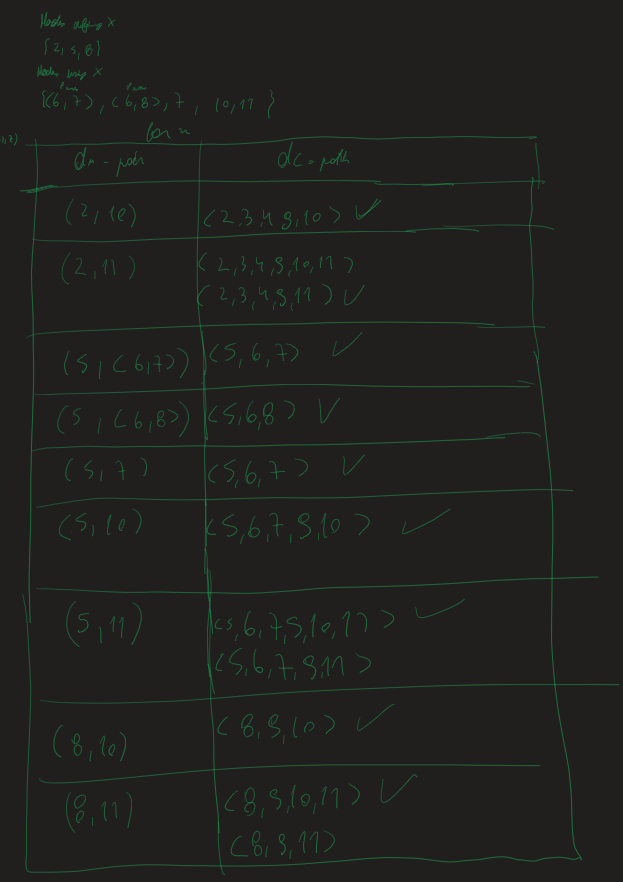 Nodes defining X
{2, 5, 8}
Nodes using X
{(6,7), (6,8), 7, 10, 11}
for x
du-pair
dc-path
(2,10) <2,3,4,9,10> ✓
(2,11) <2,3,4,9,10,11>
<2,3,4,9,11> ✓
(5,<6,7>) <5,6,7> ✓
(5,<6,8>) <5,6,8> ✓
(5,7) <5,6,7> ✓
(5,10) <5,6,7,9,10> ✓
(5,11) <5,6,7,9,10,11> ✓
<5,6,7,9,11>
(8,10) <8,9,10> ✓
(8,11) <8,9,10,11> ✓
<8,9,11>